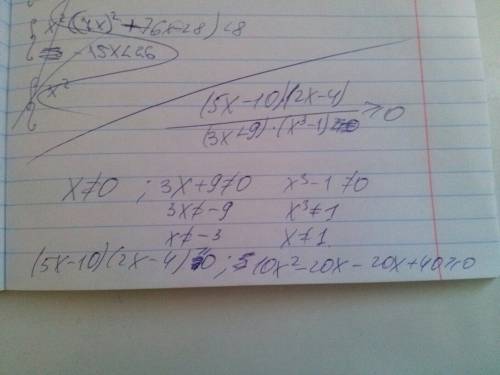 x²((4x)²+76x-28)<8
-15x<26
x²
(5x-10)(2x-4)
(3x+9)·(x³-1) ≥0
x≠0 ; 3x+9≠0 x³-1≠0
3x≠-9 x³≠1
x≠-3 x≠1.
(5x-10)(2x-4) 0 ; 10x²-20x-20x+40≥0